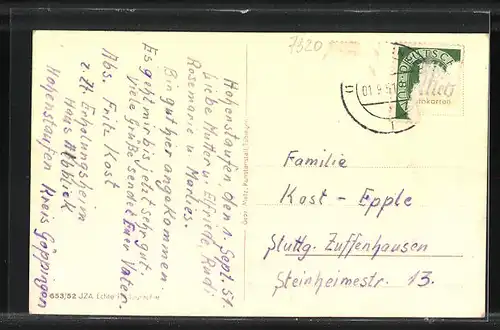 7320
Hohenstaufen, den 1. Sept. 51.
Liebe Mutter u. Elfriede, Rudi
Rosemarie u. Marlies.
Bin gut hier angekommen.
Es geht mir bis jetzt sehr gut
Viele Grüße sendet Euer Vater.
Abs. Fritz Kost
z. Zt. Erholungsheim
Haus Albblick
Hohenstaufen Kreis Göppingen
653/52 JZA
Gebr. Metz, Kunstanstalt, Tübingen
01.9.51
DEUTSCHE
Metz
Familie
Kost - Epple
Stuttg. Zuffenhausen
Steinheimestr. 13.